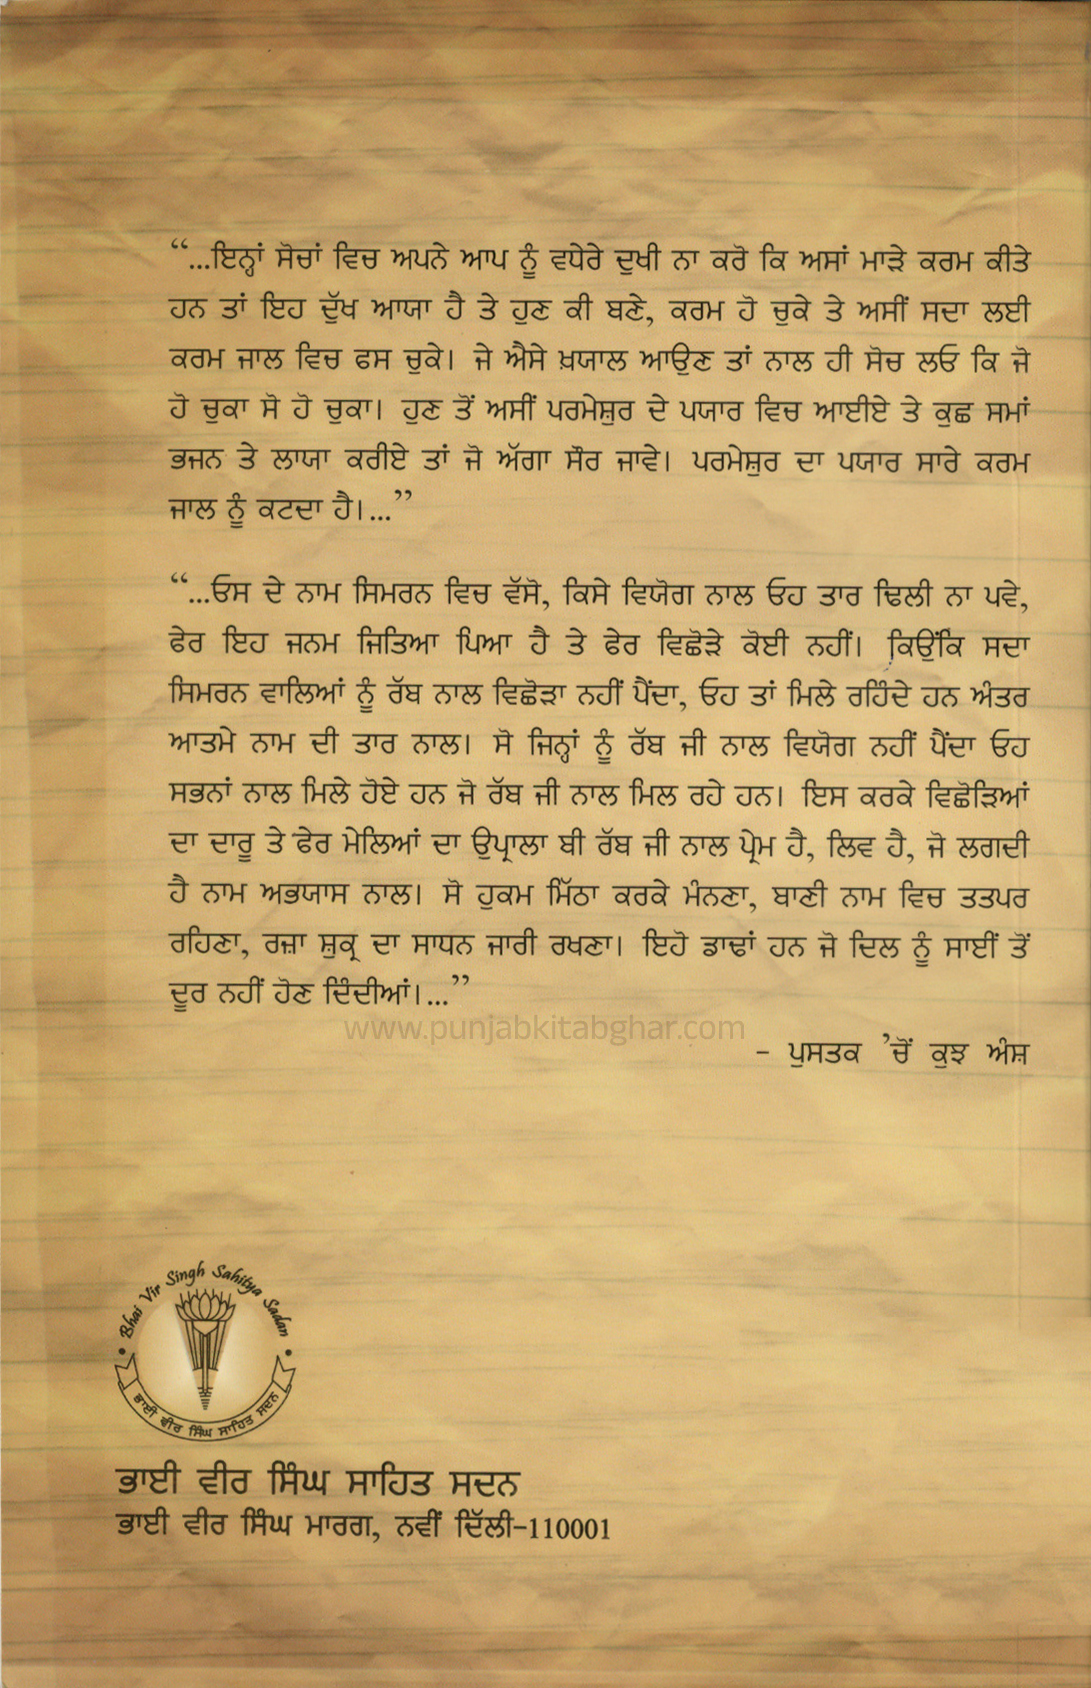 “...ਇਨ੍ਹਾਂ ਸੋਚਾਂ ਵਿਚ ਅਪਨੇ ਆਪ ਨੂੰ ਵਧੇਰੇ ਦੁਖੀ ਨਾ ਕਰੋ ਕਿ ਅਸਾਂ ਮਾੜੇ ਕਰਮ ਕੀਤੇ
ਹਨ ਤਾਂ ਇਹ ਦੁੱਖ ਆਯਾ ਹੈ ਤੇ ਹੁਣ ਕੀ ਬਣੇ, ਕਰਮ ਹੋ ਚੁਕੇ ਤੇ ਅਸੀਂ ਸਦਾ ਲਈ
ਕਰਮ ਜਾਲ ਵਿਚ ਫਸ ਚੁਕੇ। ਜੇ ਐਸੇ ਖ਼ਯਾਲ ਆਉਣ ਤਾਂ ਨਾਲ ਹੀ ਸੋਚ ਲਓ ਕਿ ਜੋ
ਹੋ ਚੁਕਾ ਸੋ ਹੋ ਚੁਕਾ। ਹੁਣ ਤੋਂ ਅਸੀਂ ਪਰਮੇਸ਼ੁਰ ਦੇ ਪਯਾਰ ਵਿਚ ਆਈਏ ਤੇ ਕੁਛ ਸਮਾਂ
ਭਜਨ ਤੇ ਲਾਯਾ ਕਰੀਏ ਤਾਂ ਜੋ ਅੱਗਾ ਸੌਰ ਜਾਵੇ। ਪਰਮੇਸ਼ੁਰ ਦਾ ਪਯਾਰ ਸਾਰੇ ਕਰਮ
ਜਾਲ ਨੂੰ ਕਟਦਾ ਹੈ।...”
“...ਓਸ ਦੇ ਨਾਮ ਸਿਮਰਨ ਵਿਚ ਵੱਸੋ, ਕਿਸੇ ਵਿਯੋਗ ਨਾਲ ਓਹ ਤਾਰ ਢਿਲੀ ਨਾ ਪਵੇ,
ਫੇਰ ਇਹ ਜਨਮ ਜਿਤਿਆ ਪਿਆ ਹੈ ਤੇ ਫੇਰ ਵਿਛੋੜੇ ਕੋਈ ਨਹੀਂ। ਕਿਉਂਕਿ ਸਦਾ
ਸਿਮਰਨ ਵਾਲਿਆਂ ਨੂੰ ਰੱਬ ਨਾਲ ਵਿਛੋੜਾ ਨਹੀਂ ਪੈਂਦਾ, ਓਹ ਤਾਂ ਮਿਲੇ ਰਹਿੰਦੇ ਹਨ ਅੰਤਰ
ਆਤਮੇ ਨਾਮ ਦੀ ਤਾਰ ਨਾਲ। ਸੋ ਜਿਨ੍ਹਾਂ ਨੂੰ ਰੱਬ ਜੀ ਨਾਲ ਵਿਯੋਗ ਨਹੀਂ ਪੈਂਦਾ ਓਹ
ਸਭਨਾਂ ਨਾਲ ਮਿਲੇ ਹੋਏ ਹਨ ਜੋ ਰੱਬ ਜੀ ਨਾਲ ਮਿਲ ਰਹੇ ਹਨ। ਇਸ ਕਰਕੇ ਵਿਛੋੜਿਆਂ
ਦਾ ਦਾਰੂ ਤੇ ਫੇਰ ਮੇਲਿਆਂ ਦਾ ਉਪ੍ਰਾਲਾ ਬੀ ਰੱਬ ਜੀ ਨਾਲ ਪ੍ਰੇਮ ਹੈ, ਲਿਵ ਹੈ, ਜੋ ਲਗਦੀ
ਹੈ ਨਾਮ ਅਭਯਾਸ ਨਾਲ। ਸੋ ਹੁਕਮ ਮਿੱਠਾ ਕਰਕੇ ਮੰਨਣਾ, ਬਾਣੀ ਨਾਮ ਵਿਚ ਤਤਪਰ
ਰਹਿਣਾ, ਰਜ਼ਾ ਸ਼ੁਕ੍ਰ ਦਾ ਸਾਧਨ ਜਾਰੀ ਰਖਣਾ। ਇਹੋ ਡਾਢਾਂ ਹਨ ਜੋ ਦਿਲ ਨੂੰ ਸਾਈਂ ਤੋਂ
ਦੂਰ ਨਹੀਂ ਹੋਣ ਦਿੰਦੀਆਂ।...”
www.punjabkitabghar.com
- ਪੁਸਤਕ ’ਚੋਂ ਕੁਝ ਅੰਸ਼
• Bhai Vir Singh Sahitya Sadan •
ਭਾਈ ਵੀਰ ਸਿੰਘ ਸਾਹਿਤ ਸਦਨ
ਭਾਈ ਵੀਰ ਸਿੰਘ ਸਾਹਿਤ ਸਦਨ
ਭਾਈ ਵੀਰ ਸਿੰਘ ਮਾਰਗ, ਨਵੀਂ ਦਿੱਲੀ-110001